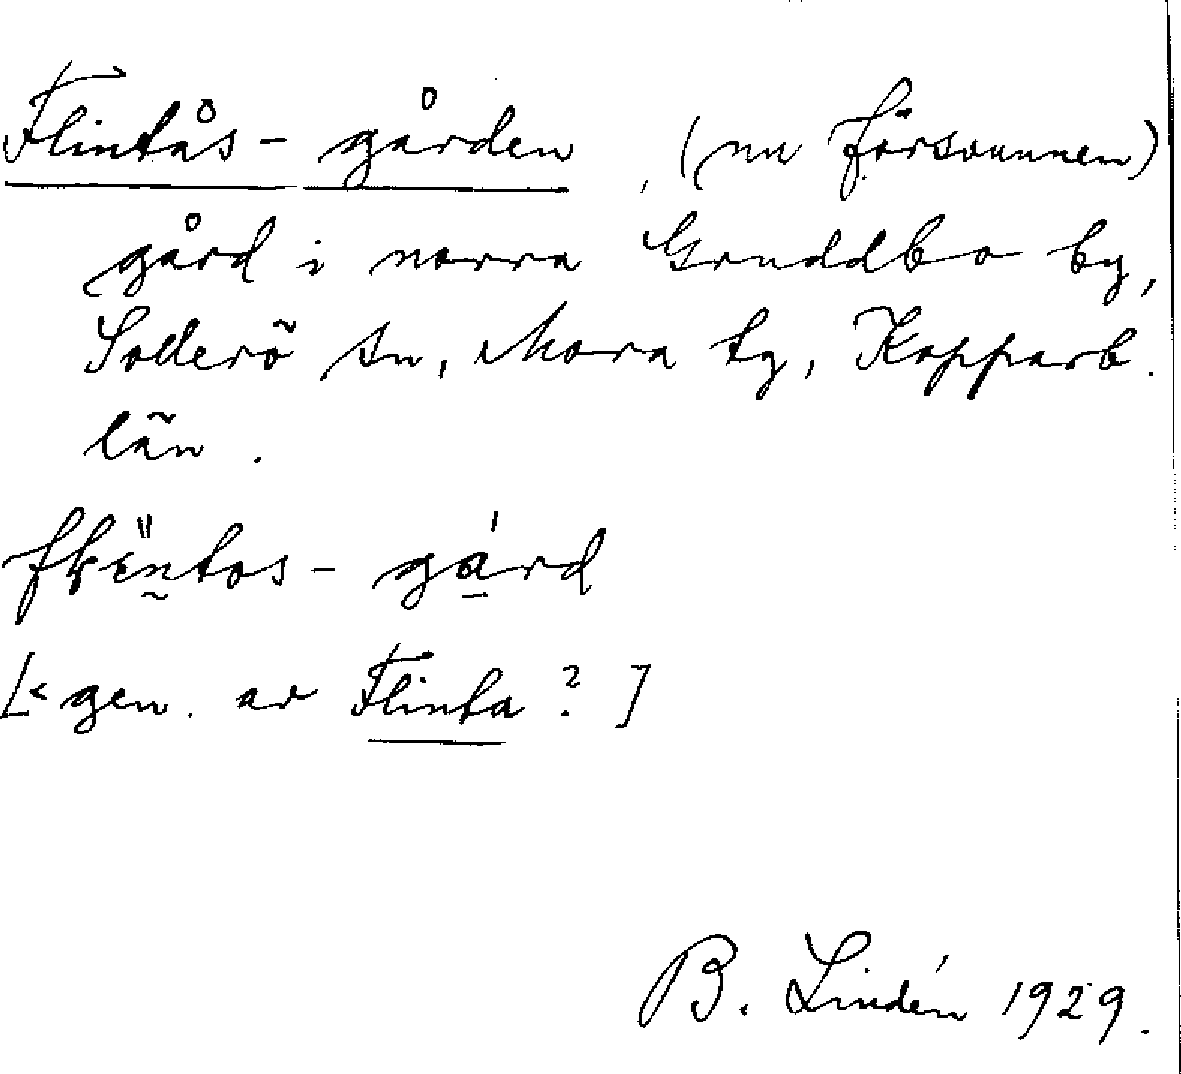 Flintås-gården, (nu försvunnen)
gård i norra Gruddbo by,
Sollerö sn, Mora tg, Kopparb.
län.
gård
[< gen. av Flinta?]
B. Lindén 1929.